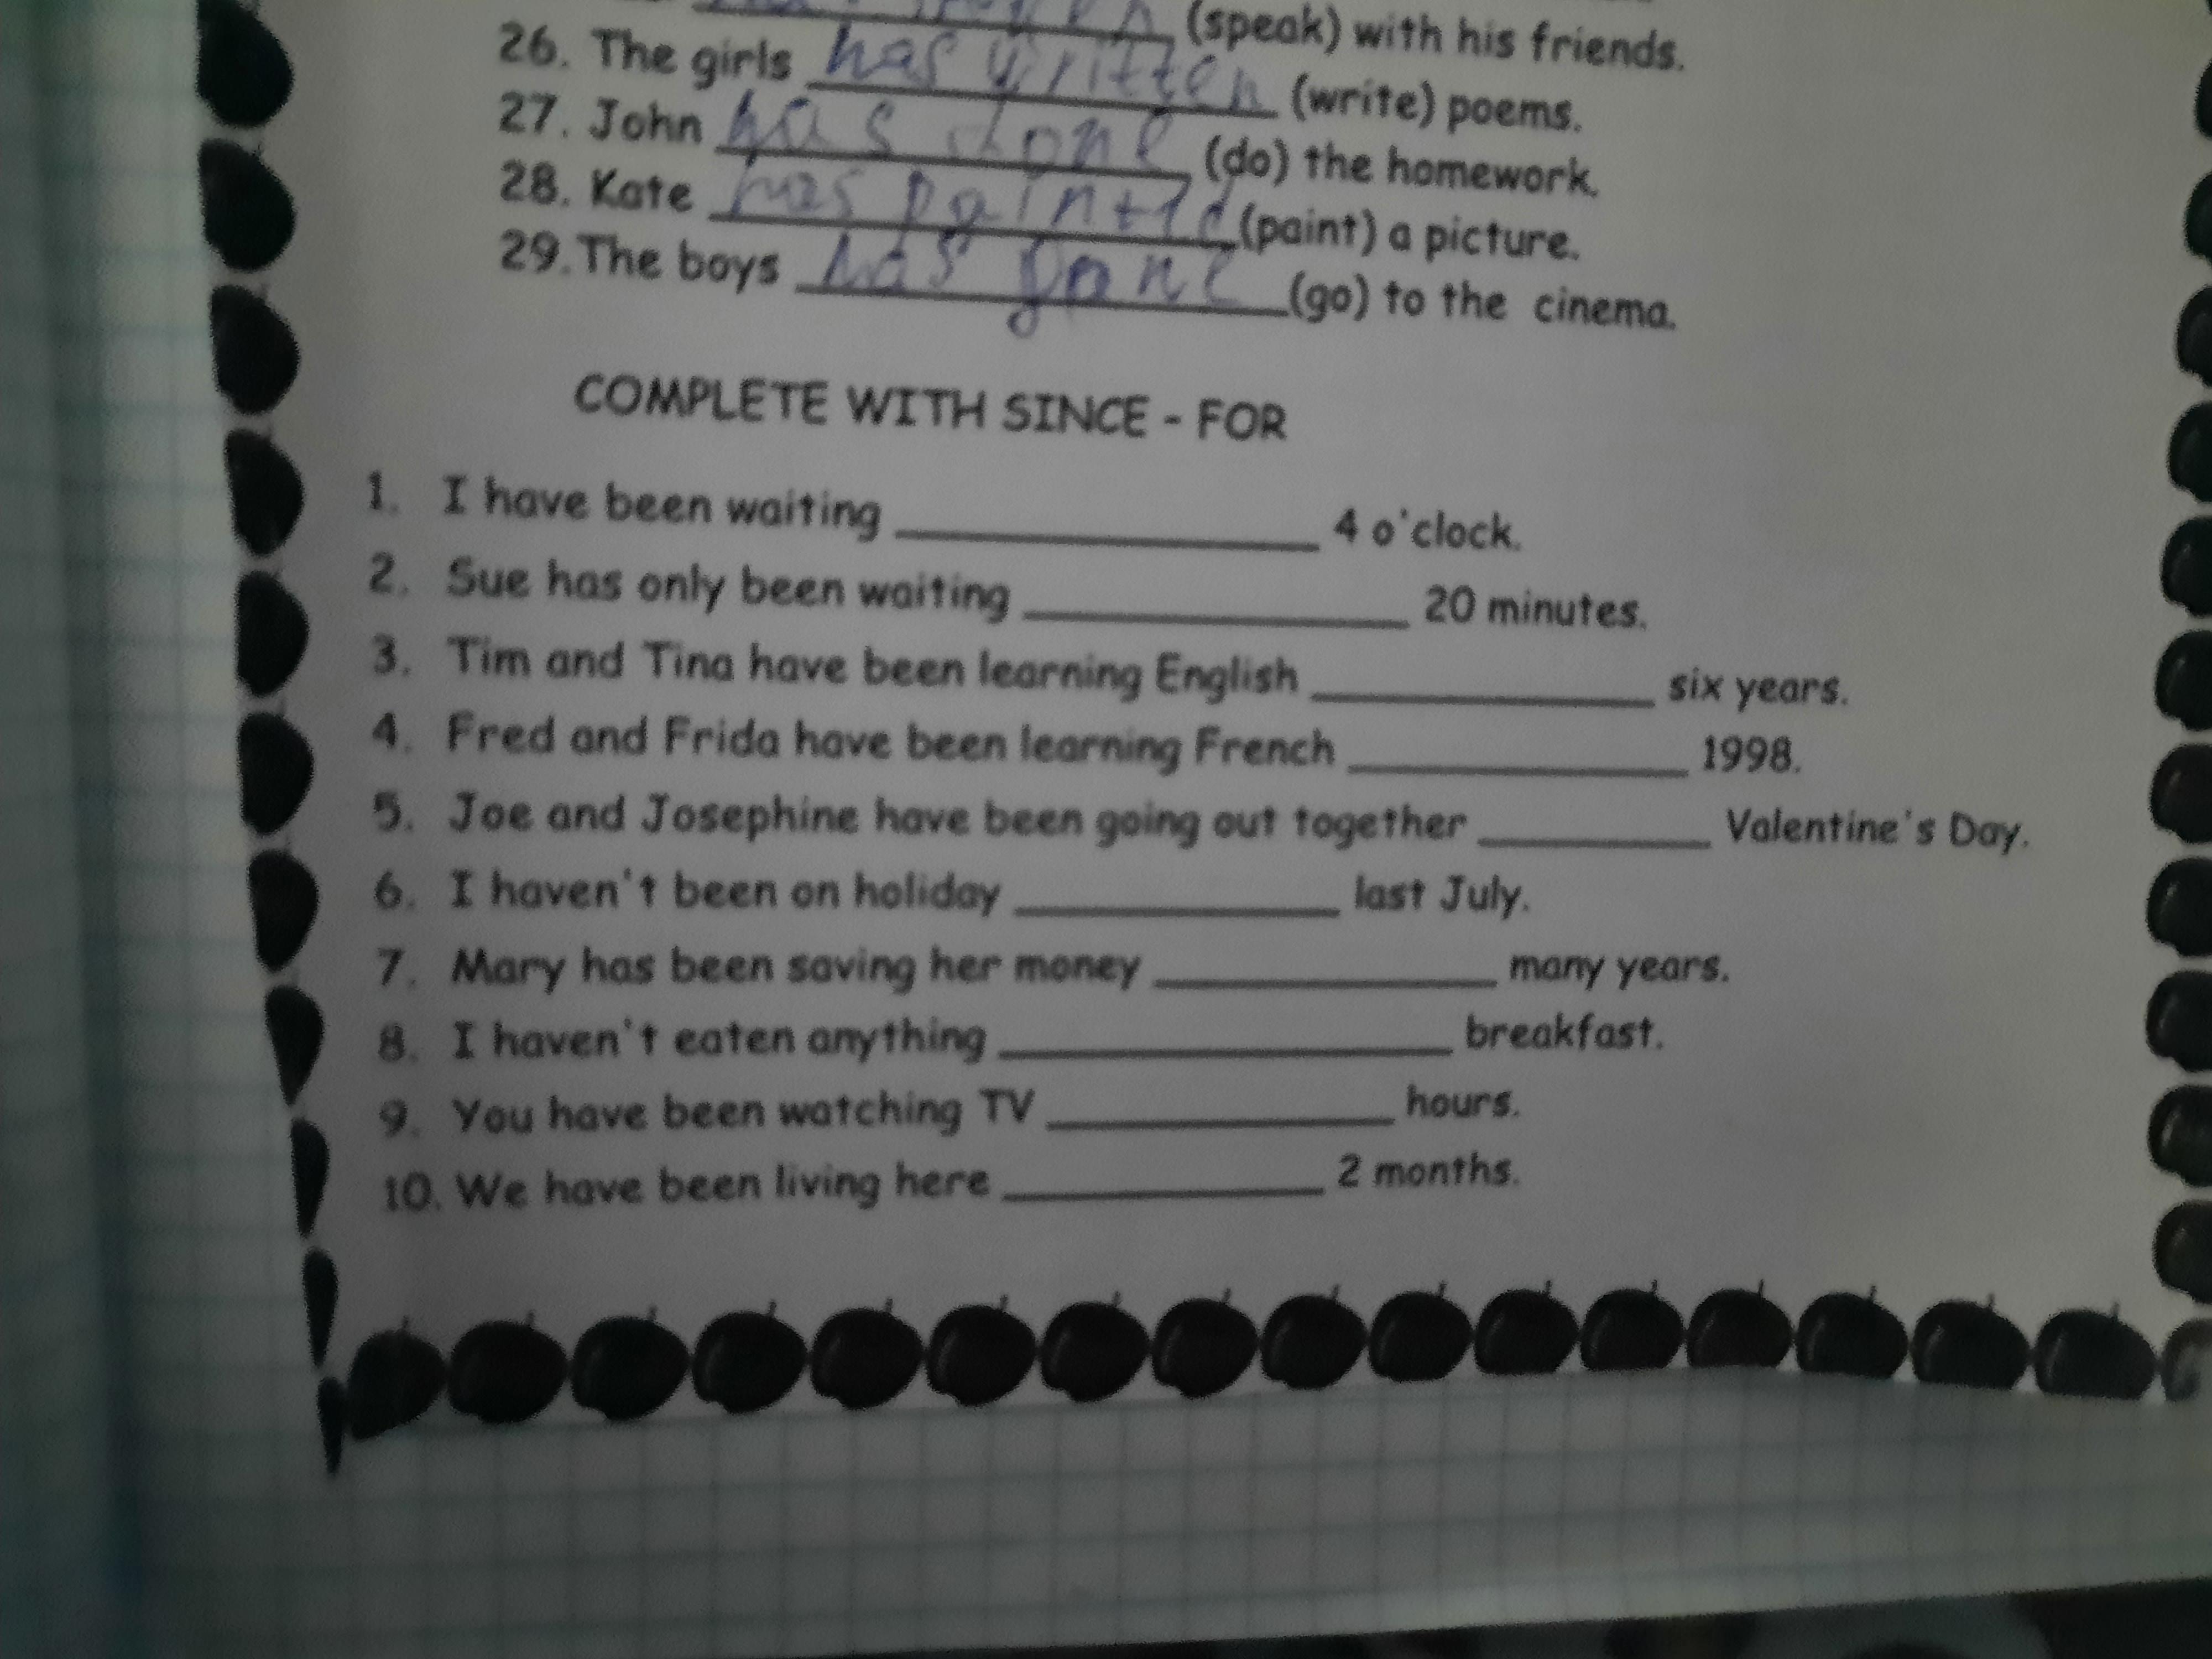 (speak) with his friends.
26. The girls has written (write) poems.
27. John has done (do) the homework.
28. Kate has painted (paint) a picture.
29. The boys has gone (go) to the cinema.
COMPLETE WITH SINCE - FOR
1. I have been waiting ____ 4 o'clock.
2. Sue has only been waiting ____ 20 minutes.
3. Tim and Tina have been learning English ____ six years.
4. Fred and Frida have been learning French ____ 1998.
5. Joe and Josephine have been going out together ____ Valentine's Day.
6. I haven't been on holiday ____ last July.
7. Mary has been saving her money ____ many years.
8. I haven't eaten anything ____ breakfast.
9. You have been watching TV ____ hours.
10. We have been living here ____ 2 months.